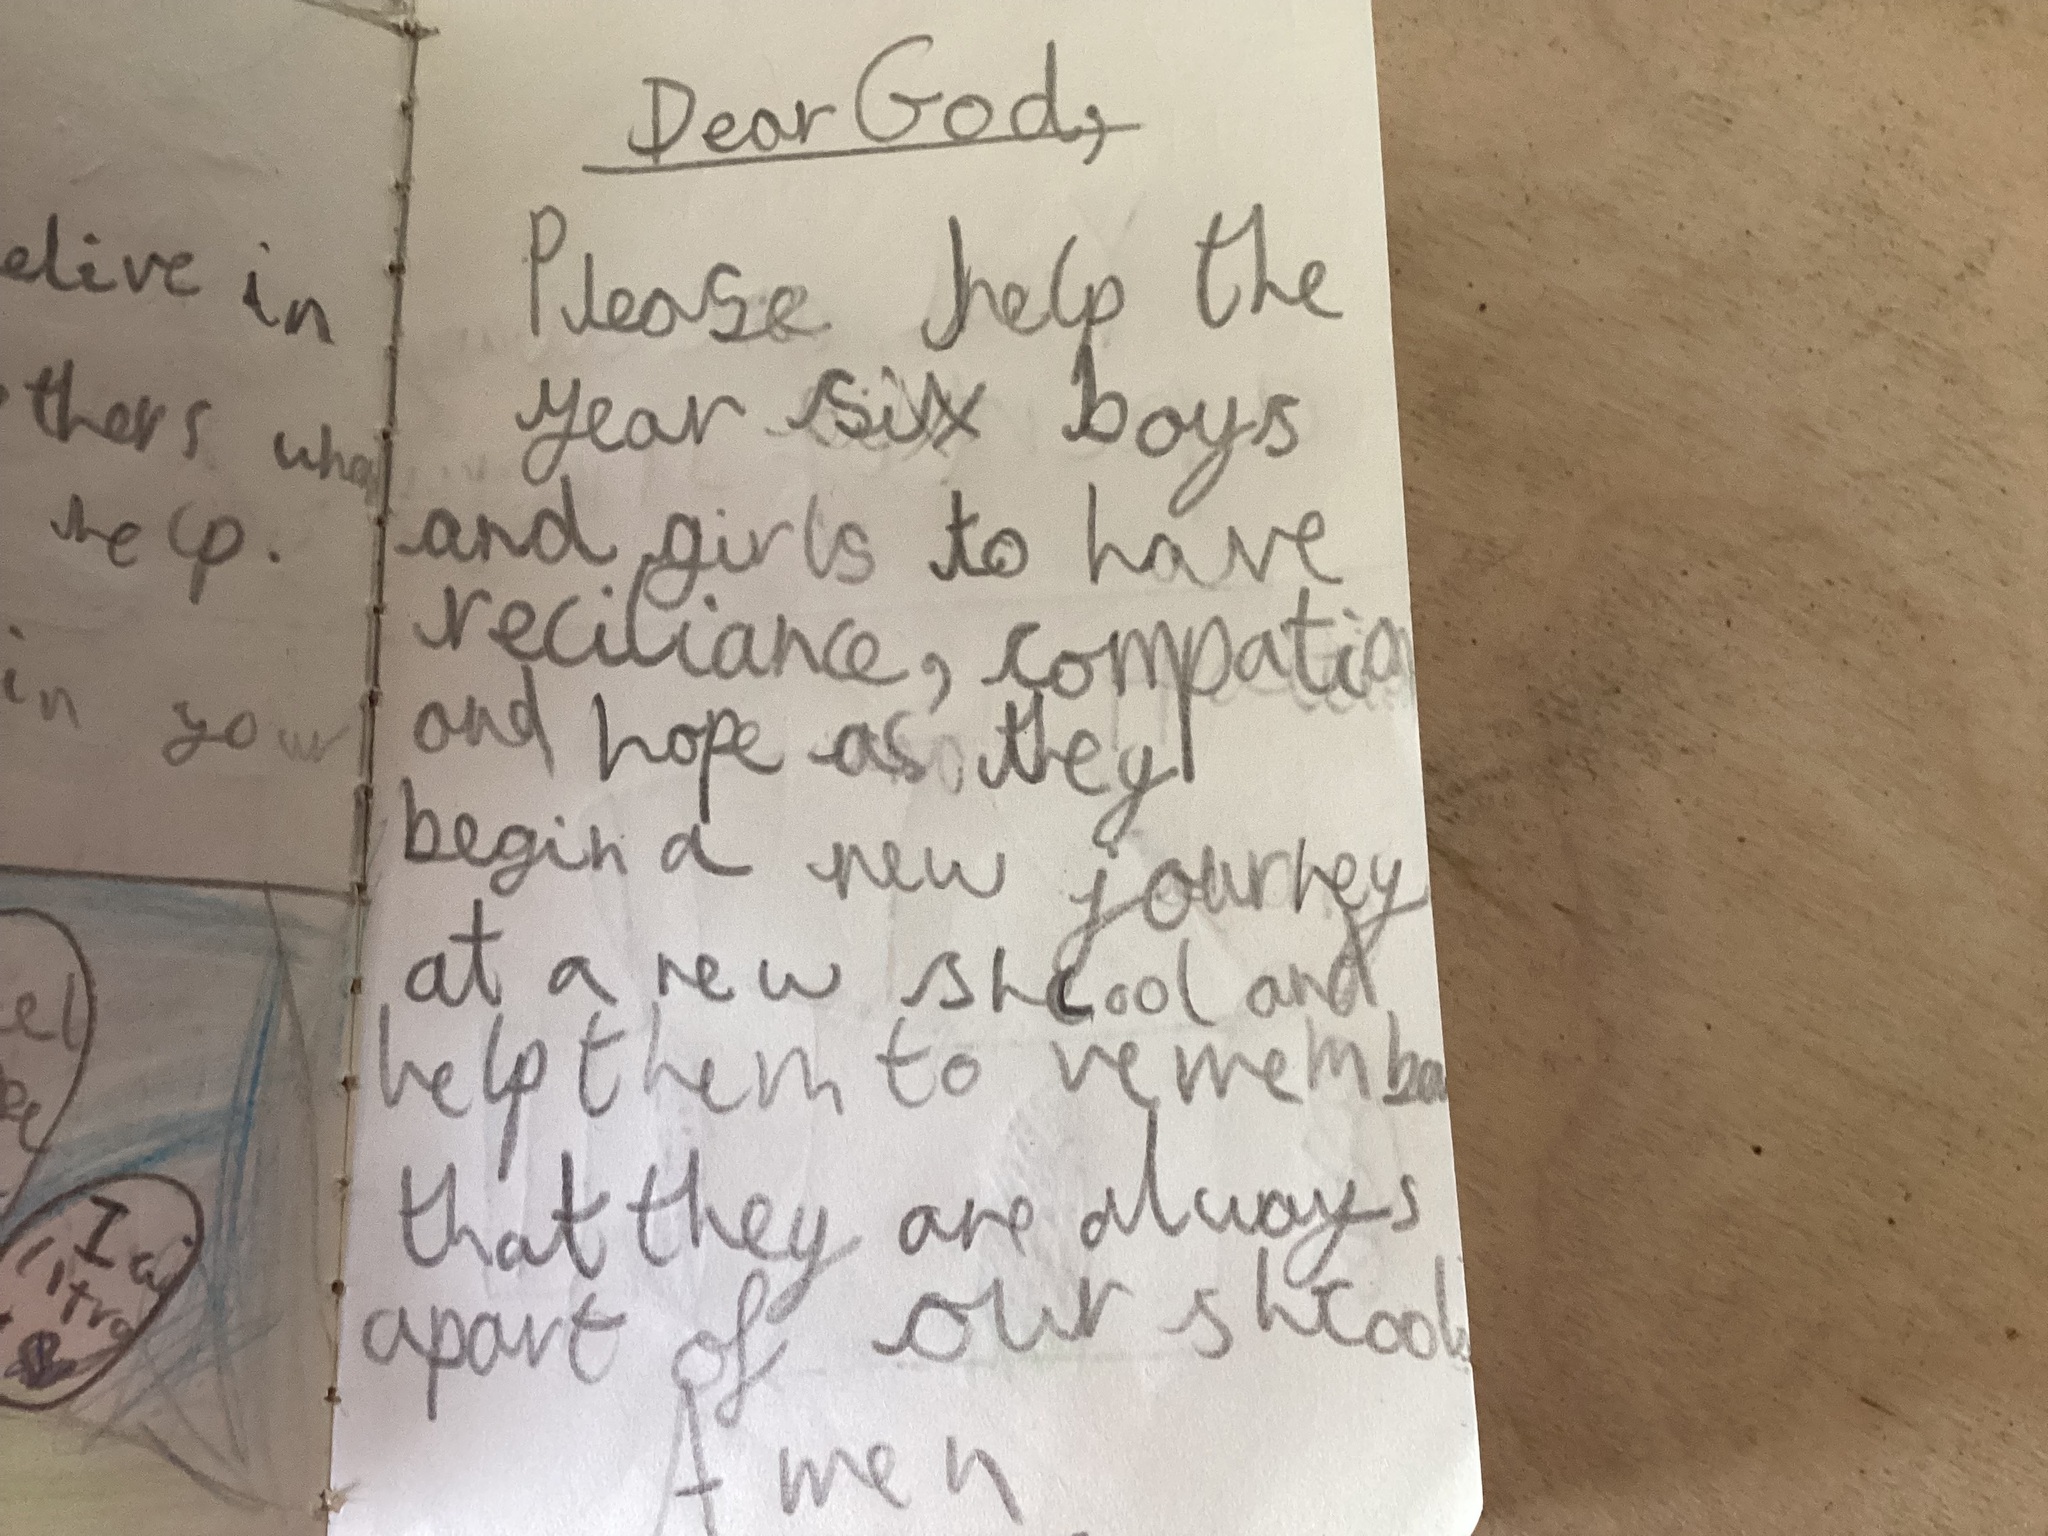 elive in
thers who
help.
in your
el
I
Dear God,
Please help the
year six boys
and girls to have
reciliance, compation
and hope as they
begin a new journey
at a new shcool and
help them to remember
that they are always
apart of our shcool
Amen